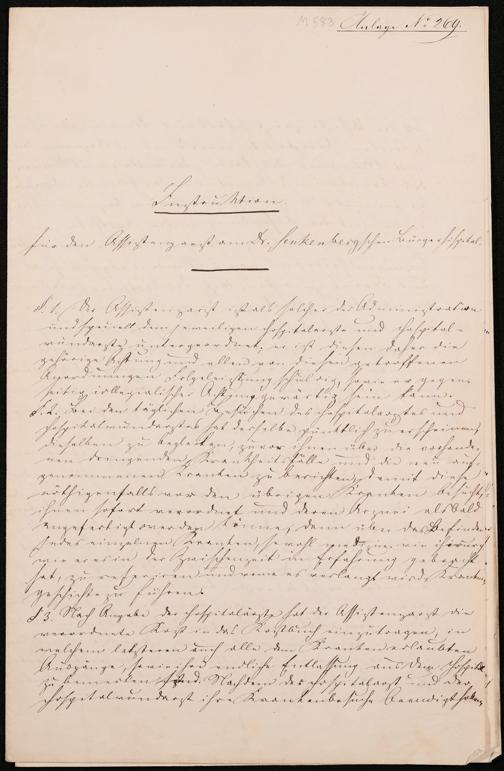 M 583
Anlage № 269.
Instruktion
für den Assistenzarzt am Dr. Senkenbergschen Bürgerhospital.
§. 1. Der Assistenzarzt ist als solcher der Administration
und speciell dem jeweiligen Hospitalarzte und Hospital-
wundarzte untergeordnet; er ist diesen daher die
gehörige Achtung und allen von diesen getroffenen
Anordnungen Folgeleistung schuldig, sowie er gegen-
seitig collegialischer Achtung gewärtig sein kann.
§. 2. Bei den täglichen Besuchen des Hospitalarztes und
Hospitalwundarztes hat derselbe pünktlich zu erscheinen,
dieselben zu begleiten, zuvor ihnen über die vorhande-
nen dringenden Krankheitsfälle und die neu auf-
genommenen Kranken zu berichten, damit diese
nöthigenfalls vor den übrigen Kranken besucht,
ihnen sofort verordnet und deren Arznei alsbald
angefertigt werden könne, dann über das Befinden
jedes einzelnen Kranken, sowohl wie
wie er es in der Zwischenzeit in Erfahrung gebracht
hat, zu referiren und wenn es verlangt wird Kranken-
geschichte zu führen.
§ 3. Nach Angabe der Hospitalärzte hat der Assistenzarzt die
verordnete Kost in das Kostbuch einzutragen, in
welchem letzteren auch alle den Kranken erlaubten
Ausgänge, sowie ihre endliche Entlassung aus dem Hospitale
zu bemerken sind. Nachdem der Hospitalarzt und der
Hospitalwundarzt ihre Krankenbesuche beendigt haben,